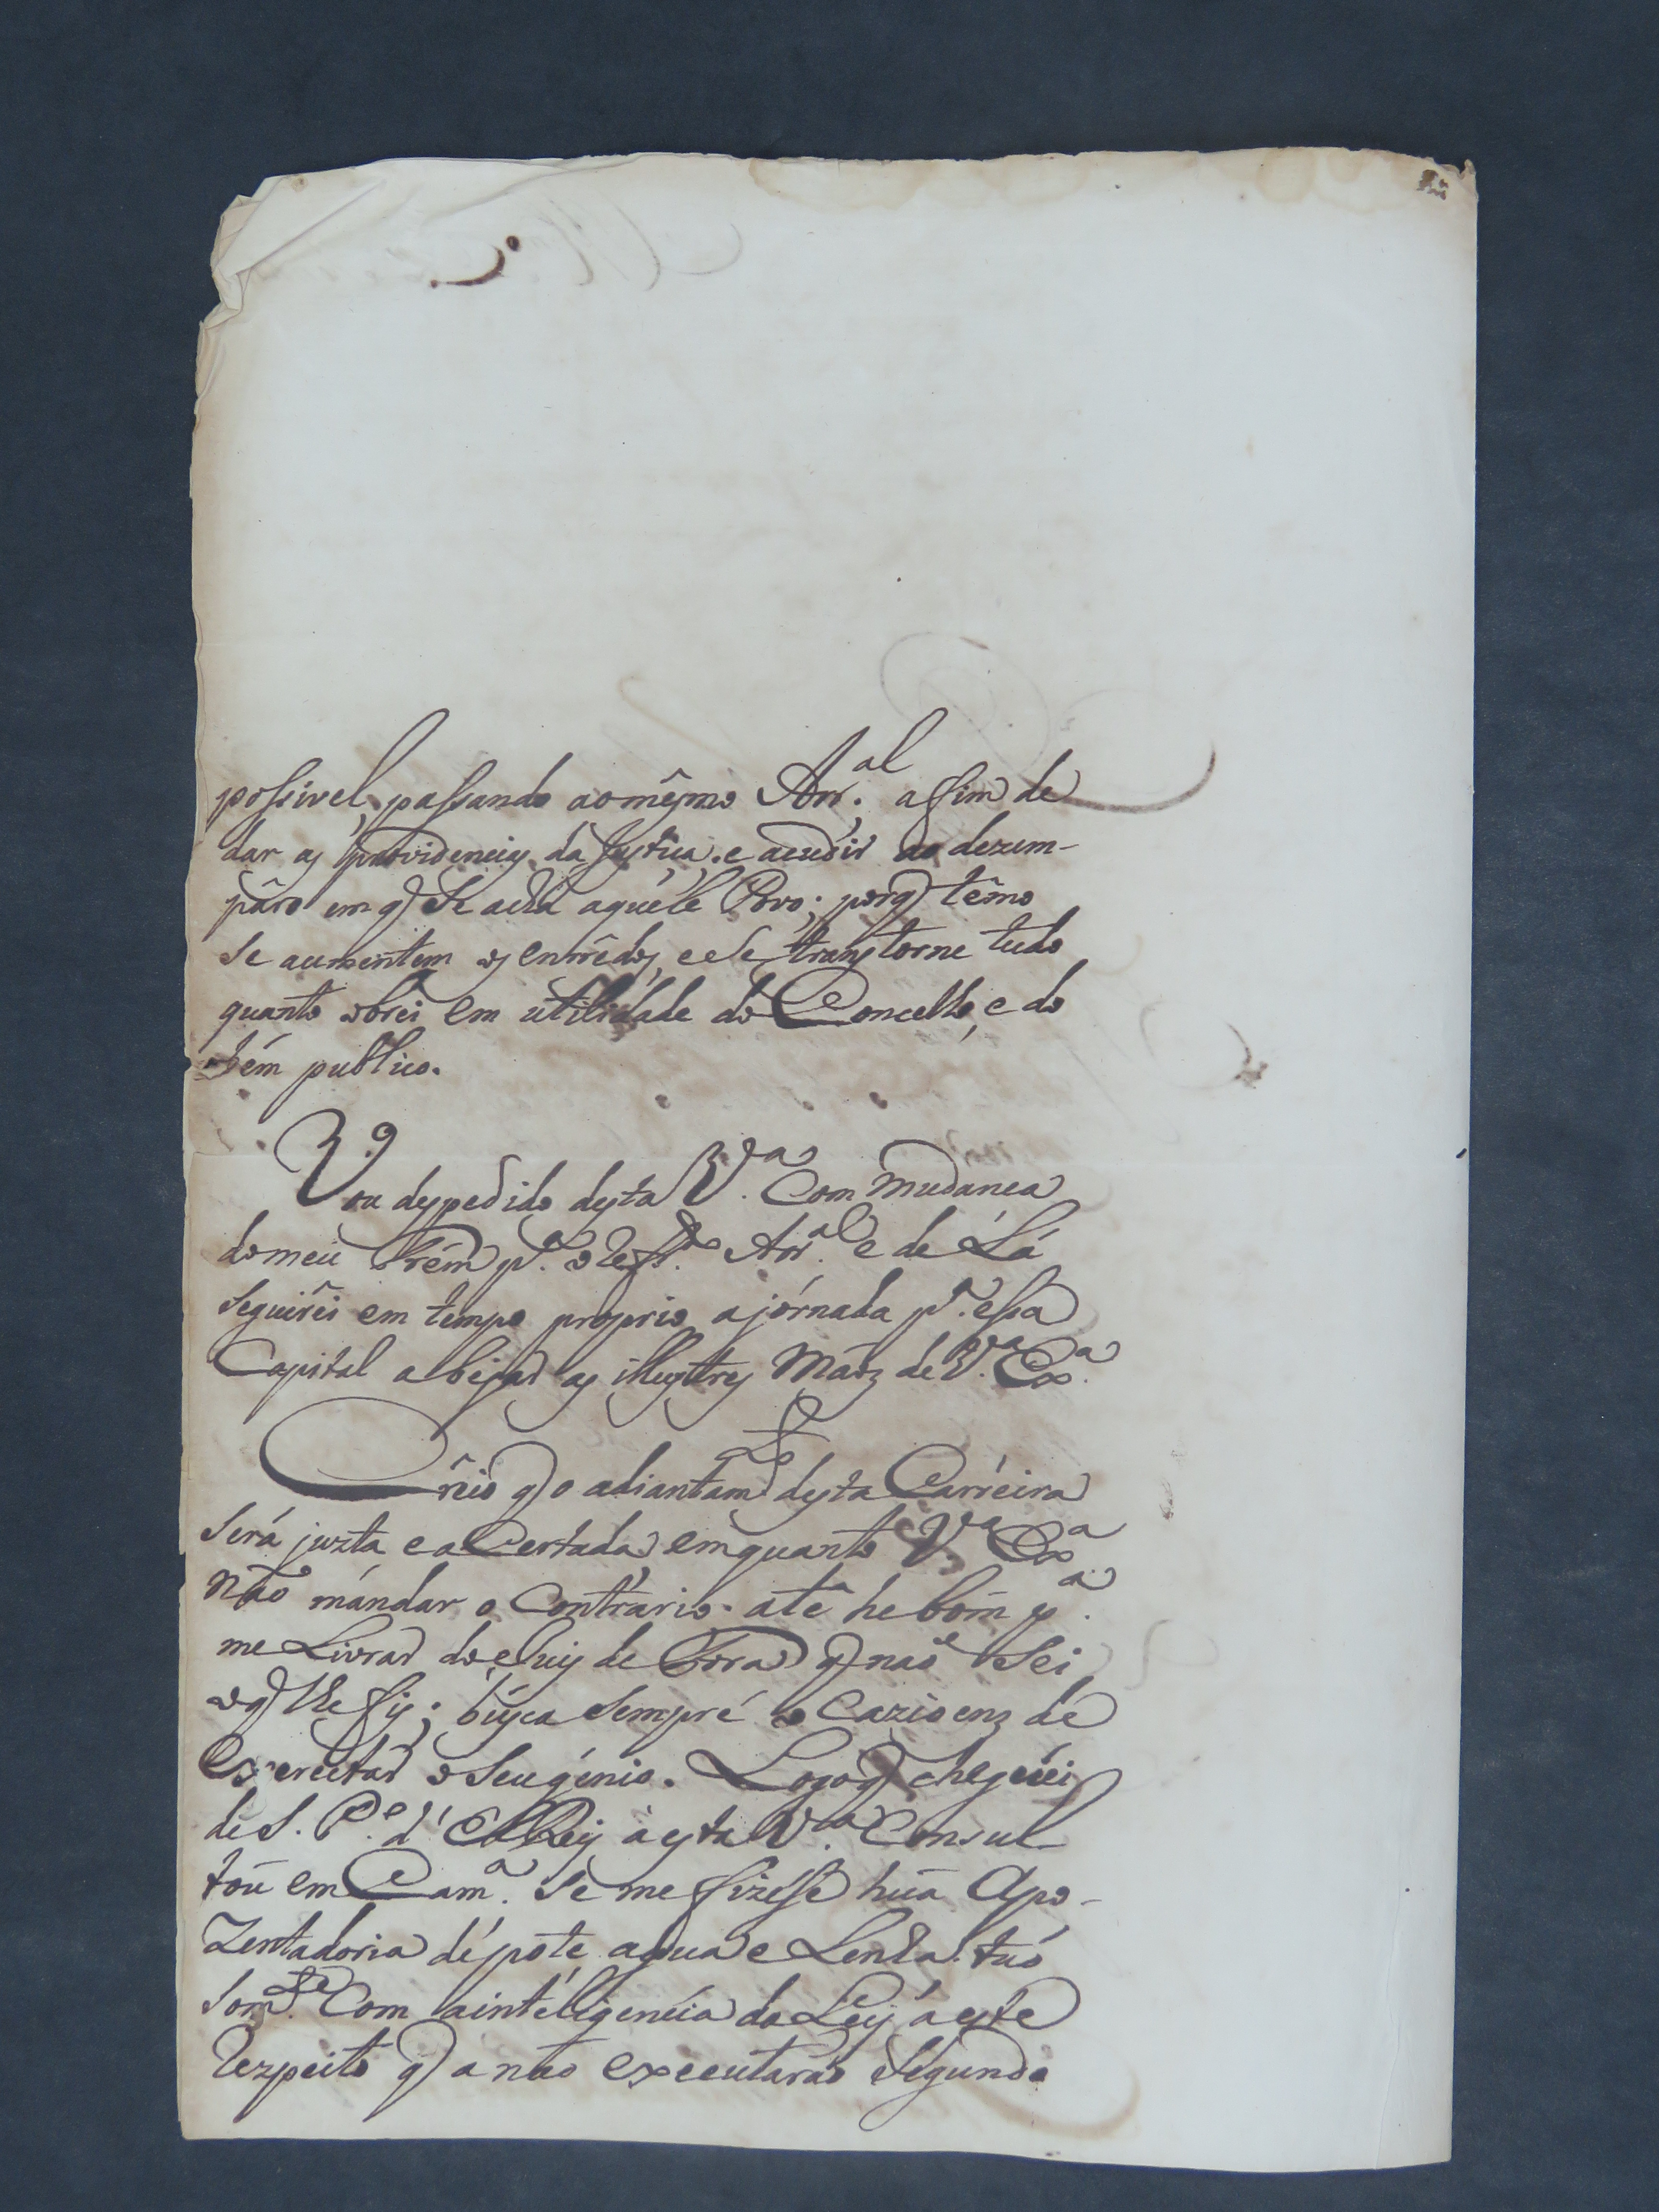 possivel, passando ao mêsmo Arr.al afim de
dar as providencias da Justica, e acudir ao dezem-
páro em q̃ Se acha aquéle Povo; porq̃ têmo
Se aumentem os enrêdos, e Se transtorne tudo
quanto obrei em utilidade do Concelho, e do
bém publico.
Vou despedido desta V.a Com Mudanca
do meu trêm p.a o Arr.al e de Lá
Seguirêi em tempo proprio a jórnada p.a essa
Capital a beijar as illustres Mãoz de V.a Ex.a
Crêio q̃ o adiantam.to desta Carréira
Será juzta e aCertada emquanto V.a Ex.a
Não mándar o Contrario. atê he bom p.a
me Livrar do Juis de Fora q̃ naõ Sei
o q̃ lhe fis; busca Sempré o Cazioens dé
Exercitar o Seu génio. Logo q̃ cheguéi
de S. P.e d' ElRey à esta V.a Consul
tou em Cam.a Se me fizesse húa Apo-
Zentadoria dé póte, agua e Lenha. tuó
Som.te Com a intéligencia da Ley á este
Respeito q̃ a naõ executaraõ Segundo